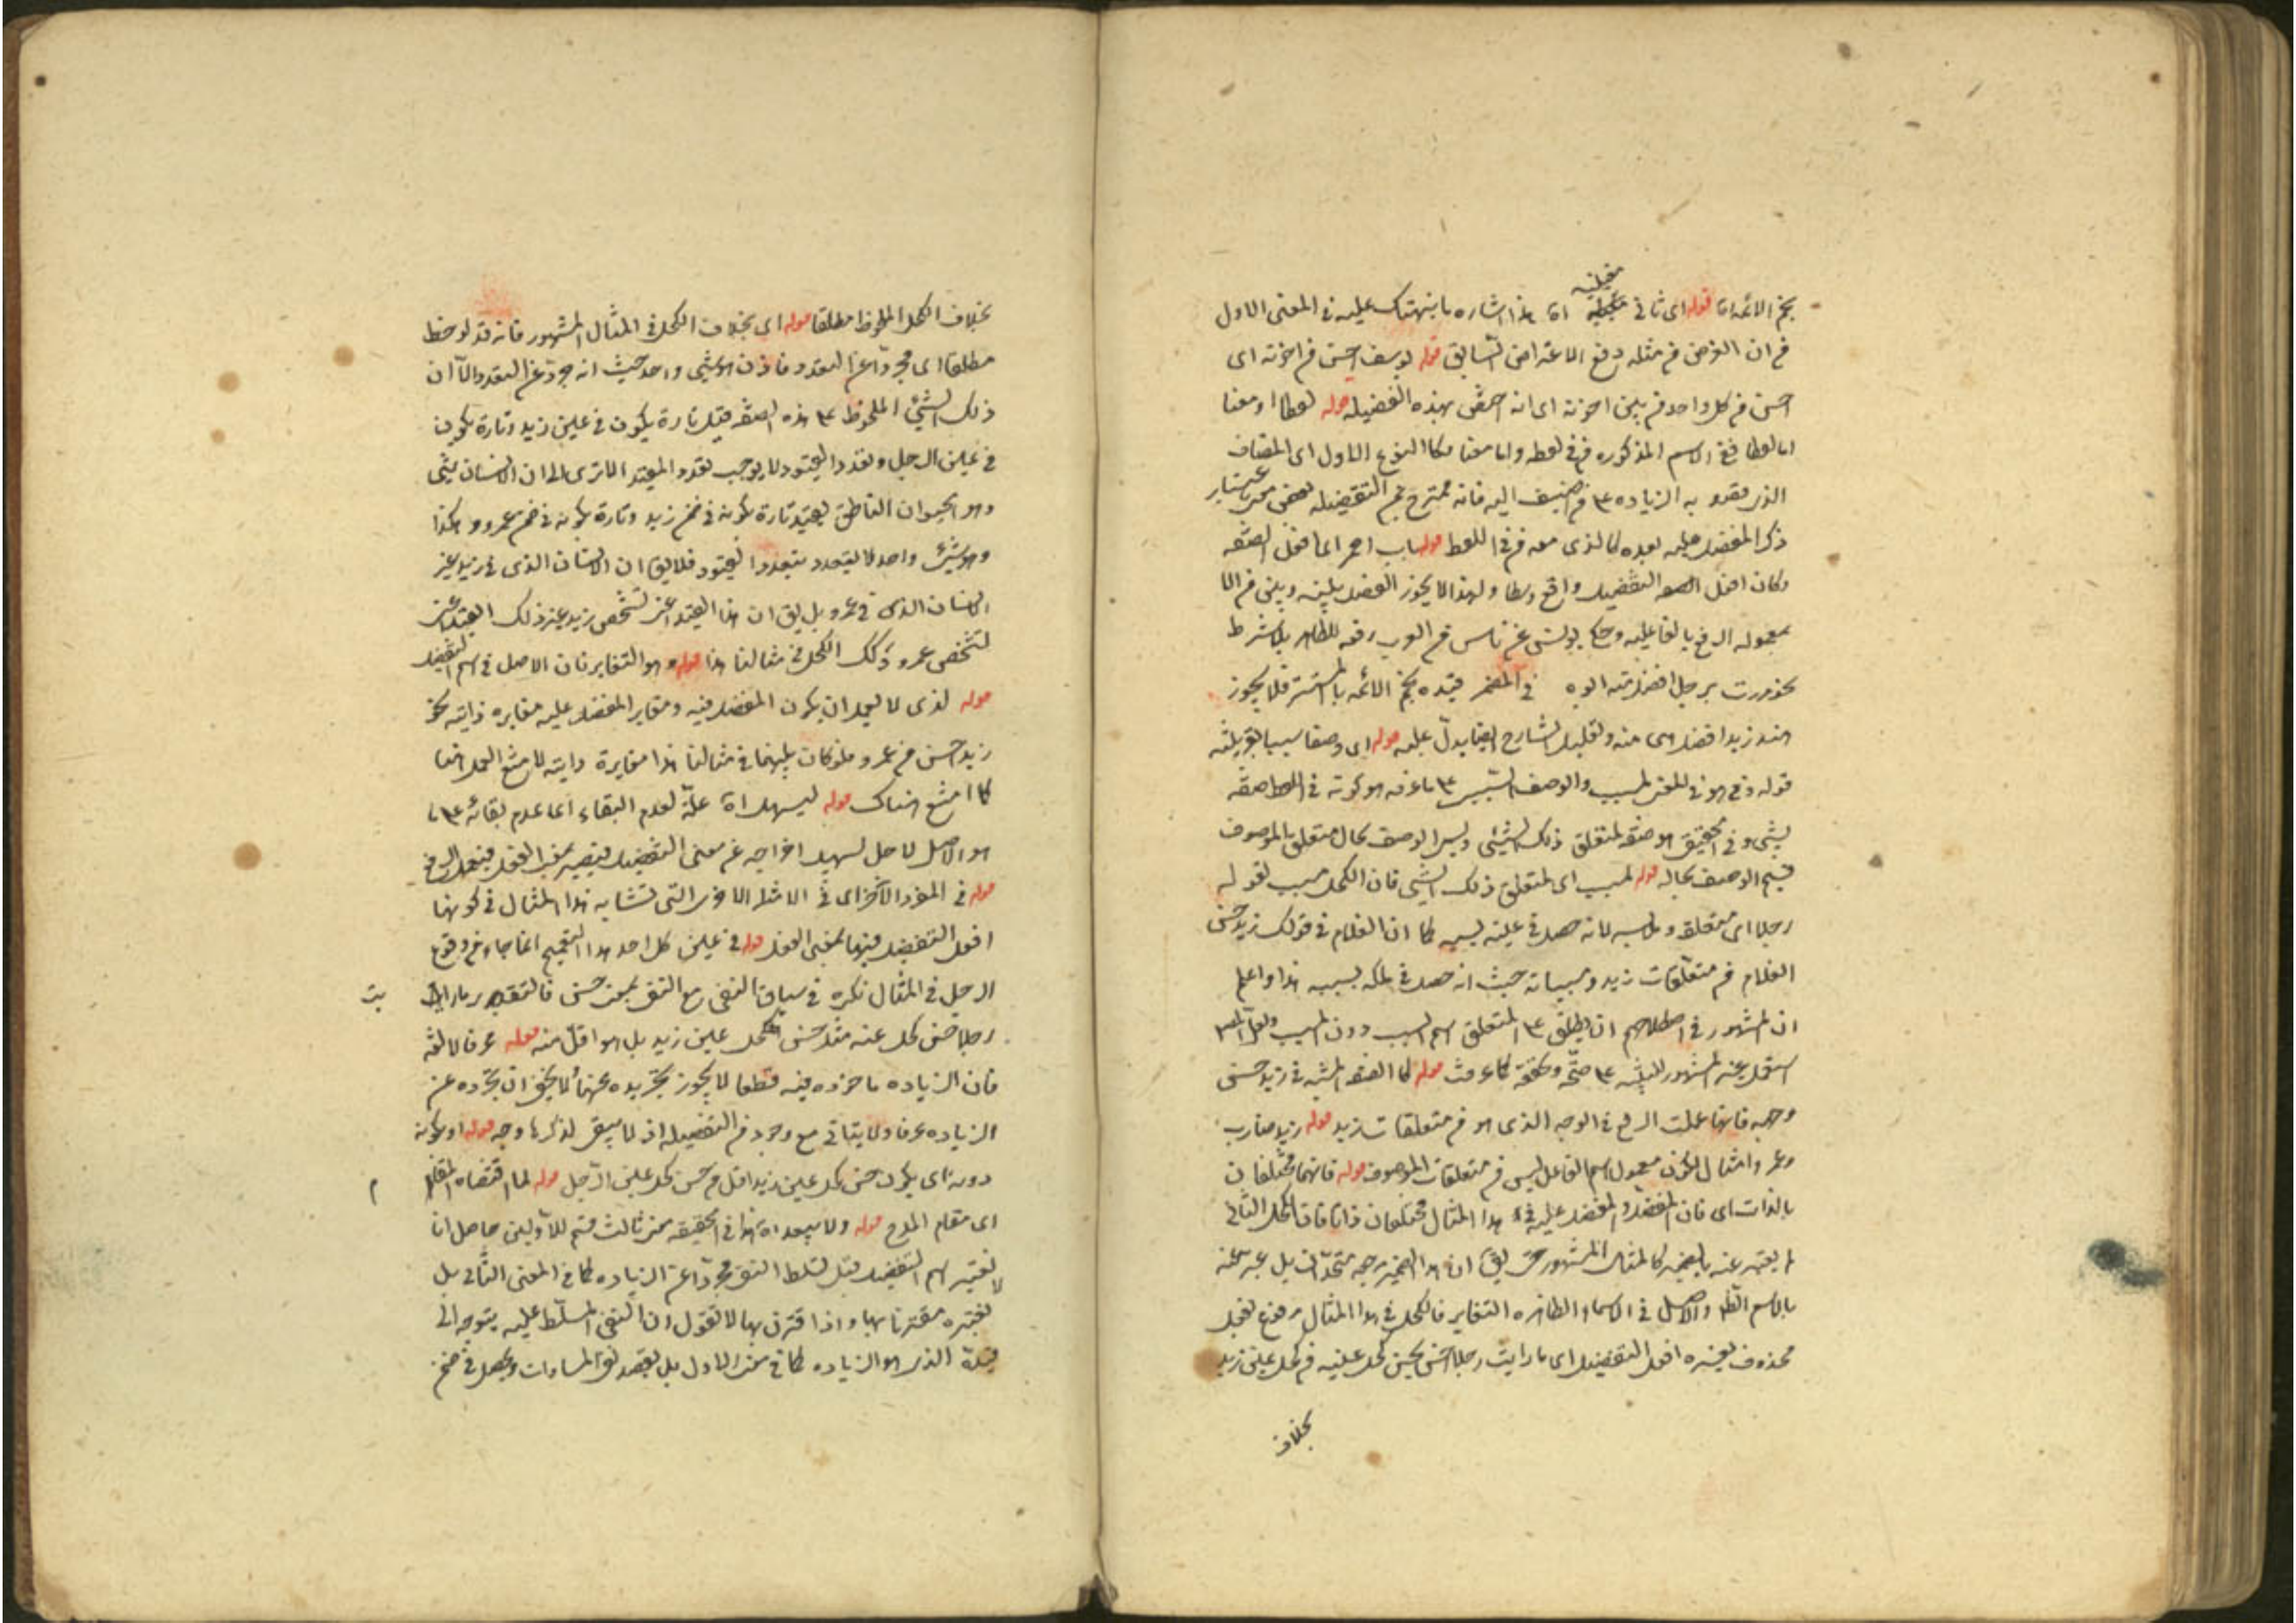 نجم الائمه اه قوله اى ثانى
فى ان الغرض من مثله دفع الاعتراض السابق قوله يوسف احسن من اخوته اى
احسن من كل واحد من بين اخوته اى انه احق بهذه الفضيله قوله لفظا او معنا
اما لفظا ففى الاسم المذكوره من فى لفظه واما معنا فكالنوع الاول اى المضاف
الذى يقصد به الزياده على من اضيف اليه فانه
ذكر المفضل عليه بعده كالذى معه من فى اللفظ قوله باب احمر اى افعل الصفه
وكان افعل التفضيل واقع وسطا ولهذا لا يجوز الفصل بينه وبين من الا
بمعموله الرفع بالفاعليه وحكى يونس عن ناس من العرب رفعه للظاهر بلا شرط
نحو مررت برجل افضل منه ابوه فى المضمر قيده نجم الائمه بالمستتر فلا يجوز
عند زيد افضل هى منه وتعليل الشارح ايضا يدل عليه قوله اى وصفا سببيا بقرينة
قوله وهو فى المعنى لمسبب والوصف السببى على ما عرفه هو كونه فى اللفظ صفه
لشىء وفى الحقيقه هو صفه لمتعلق ذلك الشىء وليس الوصف بحال متعلق الموصوف
قسيم الوصف بحاله قوله لمسبب اى لمتعلق ذلك الشىء فان الكحل مسبب لقوله
رجلا اى متعلقه لانه حصل فى عينه بسببه كما ان الغلام فى قولك زيد حسن
الغلام من متعلقات زيد ومسبباته حيث انه حصل فى ملكه بسببه هذا واعلم
ان المشهور فى اصطلاحهم ان يطلق على المتعلق اسم السبب دون المسبب
قوله كما الصفه المشبه فى زيد حسن
وجهه فانها عملت الرفع فى الوجه الذى هو من متعلقات زيد قوله زيد ضارب
عمروا مثال لكون معمول اسم الفاعل ليس من متعلقات الموصوف قوله فانهما مختلفان
بالذات اى فان المفضل والمفضل عليه فى هذا المثال مختلفان ذاتا فان الكحل الثانى
لم يعبر عنه بالضمير كالمثال المشهور حتى يق ان هذا الضمير ومرجعه متحدان بل عبر عنه
بالاسم الظاهر والاصل فى الاسماء الظاهره التغاير فالكحل فى هذا المثال مرفوع بفعل
محذوف يفسره افعل التفضيل اى ما رايت رجلا احسن يحسن كحل عينيه من كحل عين زيد
بخلاف
بخلاف الكحل الملحوظ مطلقا قوله اى بخلاف الكحل فى المثال المشهور فانه قد لوحظ
مطلقا اى مجردا عن التعدد فاذن هو شىء واحد حيث انه مجرد عن التعدد الا ان
ذلك الشىء الملحوظ على هذه الصفه قيل تارة بكون فى عين زيد وتارة بكون
فى عين الرجل وتعدد القيود لا يوجب تعدد المقيد الا ترى الى ان الانسان شىء
وهو الحيوان الناطق يقيد تارة بكونه فى ضمن زيد وتارة بكونه فى ضمن عمرو وهكذا
وهو شىء واحد لا يتعدد بتعدد القيود فلا يق ان الانسان الذى فى زيد غير
الانسان الذى فى عمرو بل يق ان هذا القيد اعنى تشخص زيد غير ذلك القيد اعنى
تشخص عمرو وكذلك الكحل فى مثالنا هذا قوله وهو التغاير فان الاصل فى اسم التفضيل
قوله لذى لا لعمل ان يكون المفضل فيه ومغاير المفضل عليه مغايره ذاتيه نحو
زيد احسن من عمرو فلو كان بينهما فى مثالنا هذا مغايرة ذاتيه لامتنع العمل هنا
كما امتنع هناك قوله ليسهل اه علة لعدم البقاء اى عدم بقائه على ما
هو الاصل لاجل تسهيل اخراجه عن معنى التفضيل فيصير بمعنى الفعل فيعمل الرفع
قوله فى المواد الاخر اى فى الامثله الاخرى التى تشابه هذا المثال فى كونها
افعل التفضيل فيها بمعنى الفعل قوله فى عين كل احد هذا التعميم انما جاء من وقوع
الرجل فى المثال نكره فى سياق النفى مع النفى بمعنى حسن فالتقدير ما رايت
رجلا حسن كحل عينه مثل حسن كحل عين زيد بل هو اقل منه قوله عرفا لا لغه
فان الزياده ماخوذه فيه قطعا لا يجوز تجريده عنها لا يخفى ان تجرده عن
الزياده عرفا ولا يتاتى مع وجود من التفضيليه اذ لا يبقى لذكرها وجه قوله او بكونه
دونه اى بكون حسن كحل عين زيد اقل من حسن كحل عين الرجل قوله لما اقتضاه المقام
اى مقام المدح قوله ولا يبعد اه هذا فى الحقيقه معنى ثالث قسيم للاولين حاصله انا
لا نعتبر اسم التفضيل قبل تسلط النفى مجردا عن الزياده كما فى المعنى الثانى بل
نعتبره مقترنا بها واذا اقترن بها لا نقول ان النفى المسلط عليه يتوجه الى
قيده الذى هو الزياده كما فى معنى الاول بل يقصد نفى المساوات ويحصل فى ضمن